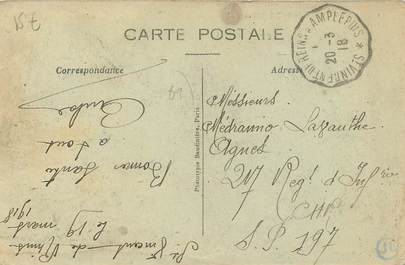 15 F
CARTE POSTALE
Correspondance
Adresse
ST VINCENT DE REINS * AMPLEPUIS *
20-3
18
Phototypie Baudinière, Paris
Messieurs
Médranno Lazauthe
Agnet
217 Regt d'Infrie
S.P. 197
St Vincent de Reins
le 19 mars
1918
Bonne Santé
a tout